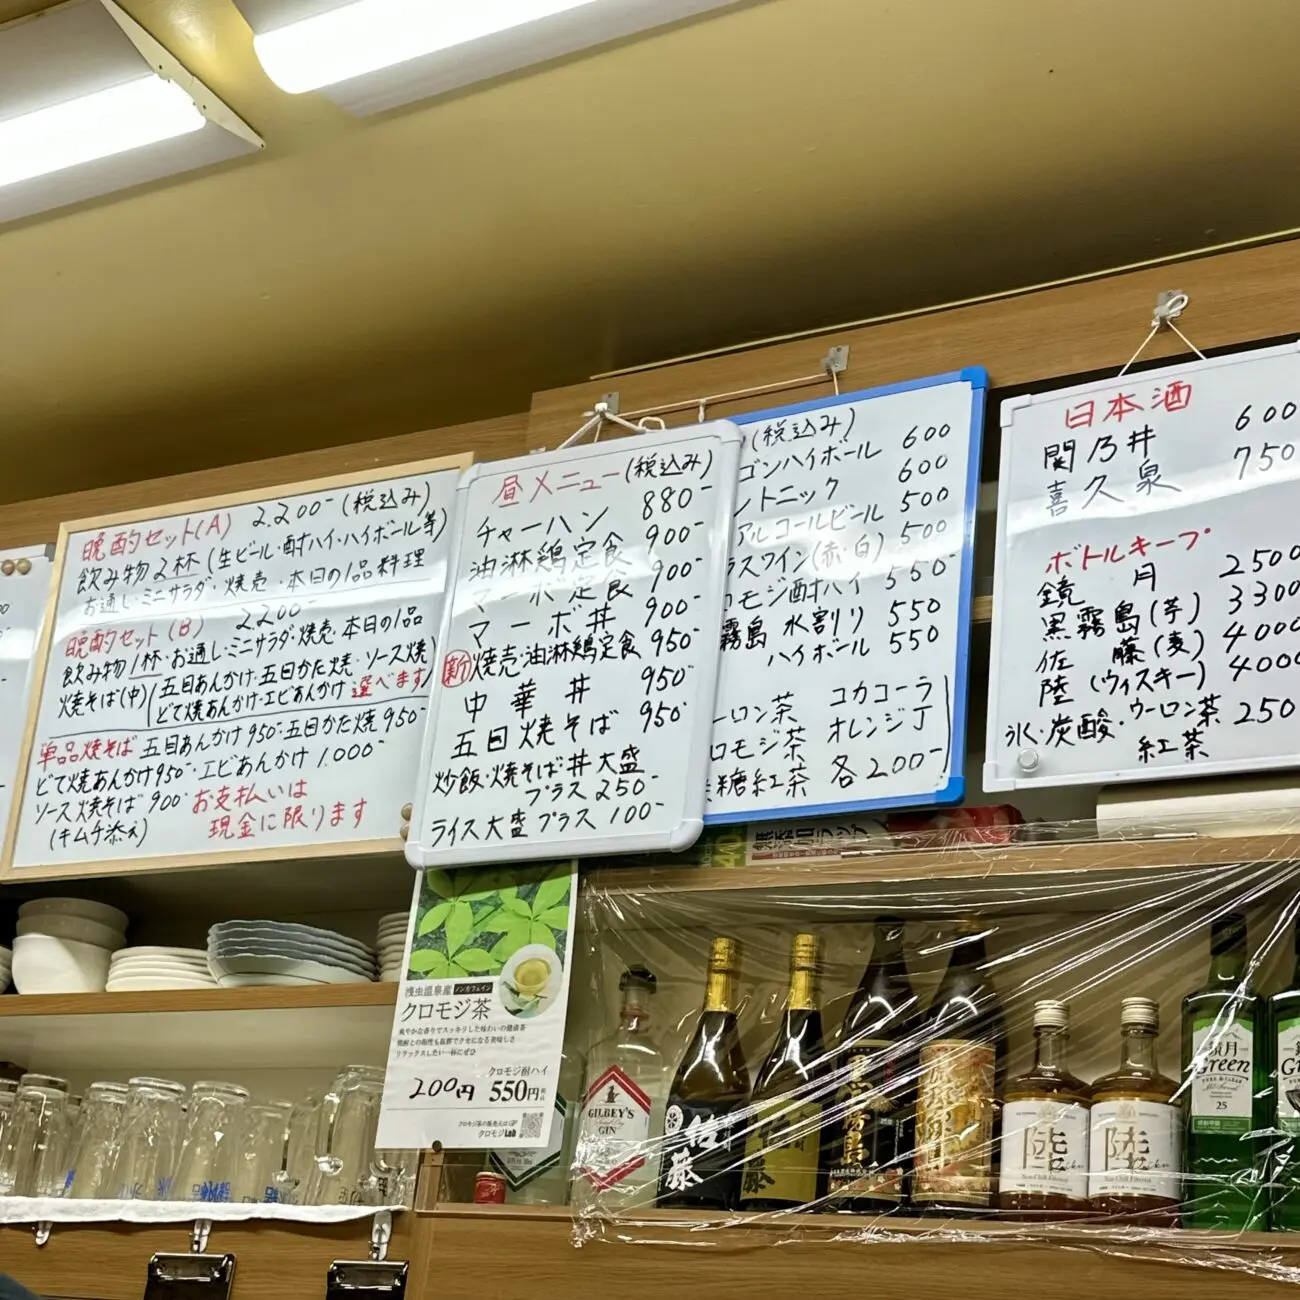 晩酌セット(A) 2,200-(税込み)
飲み物2杯(生ビール・酎ハイ・ハイボール等)
お通し・ミニサラダ・焼売・本日の1品料理
晩酌セット(B) 2200-
飲み物1杯・お通し・ミニサラダ・焼売・本日の1品
焼そば(中)(五目あんかけ・五目かた焼・ソース焼
どて焼あんかけ・エビあんかけ 選べます)
単品焼そば 五目あんかけ950-・五目かた焼950-
どて焼あんかけ950-・エビあんかけ1.000-
ソース焼そば900-
(キムチ添え)
お支払いは
現金に限ります
昼メニュー(税込み)
チャーハン 880-
油淋鶏定食 900-
マーボ定食 900-
マーボ丼 900-
新 焼売・油淋鶏定食 950-
中華丼 950-
五目焼そば 950-
炒飯・焼そば丼大盛
プラス250-
ライス大盛プラス100-
(税込み)
ゴンハイボール 600
ントニック 600
アルコールビール 500
ラスワイン(赤・白) 500
モジ酎ハイ 550-
霧島 水割り 550
ハイボール 550
ーロン茶 コカコーラ
ロモジ茶 オレンジJ
糖紅茶 各200-
日本酒
関乃井 600
喜久泉 750
ボトルキープ
鏡月 2500
黒霧島(芋) 3300
佐藤(麦) 4000
陸(ウィスキー) 4000
氷・炭酸・ウーロン茶 250
紅茶
浅虫温泉産 ノンカフェイン
クロモジ茶
爽やかな香りでスッキリした味わいの健康茶
焼酎との相性も抜群でクセになる美味しさ
リラックスしたい一杯にぜひ
クロモジ酎ハイ
200円 550円
クロモジLab
GILBEY'S
GIN
佐藤
藤
黒霧島
陸
陸
鏡月
Green
25